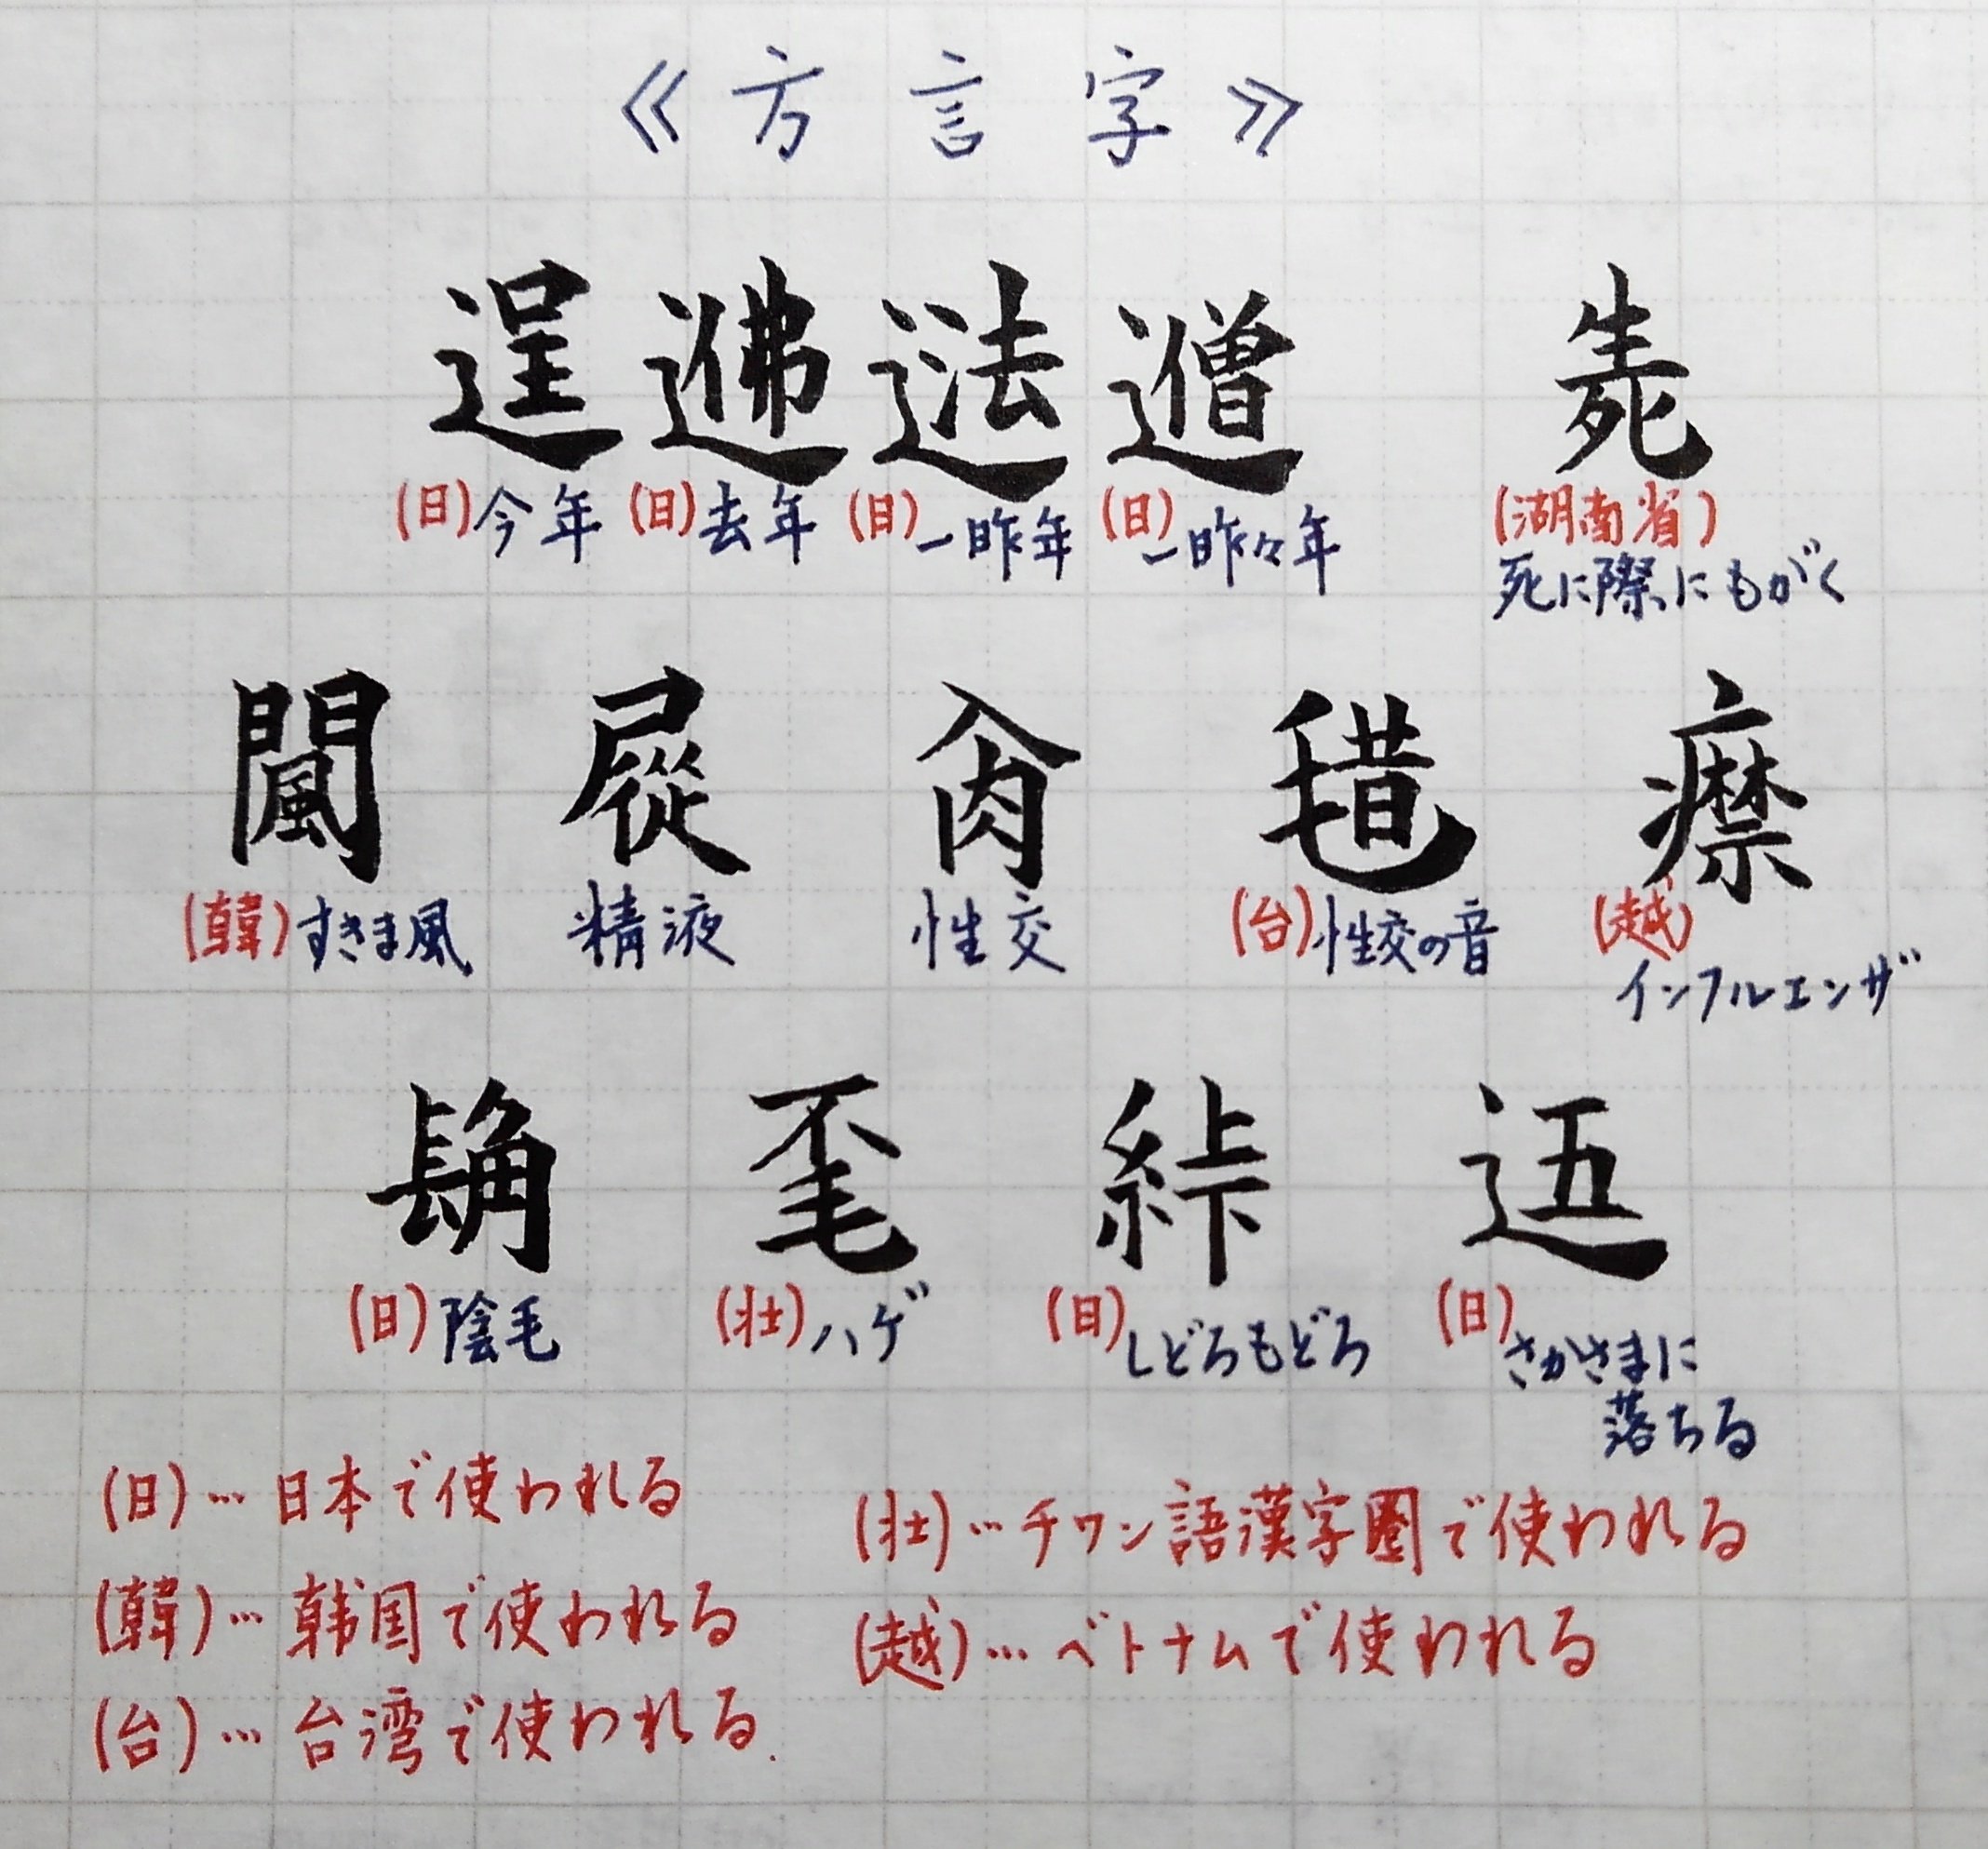 《方言字》
逞
(日)今年 (日)去年 (日)一昨年 (日)一昨々年 (湖南省)
死に際にもがく
肏
(韓)すきま風 精液 性交 (台)性交の音 (越)
インフルエンザ
(日)陰毛 (壮)ハゲ (日)しどろもどろ (日)さかさまに
落ちる
(日)…日本で使われる
(韓)…韓国で使われる
(台)…台湾で使われる.
(壮)…チワン語漢字圏で使われる
(越)…ベトナムで使われる